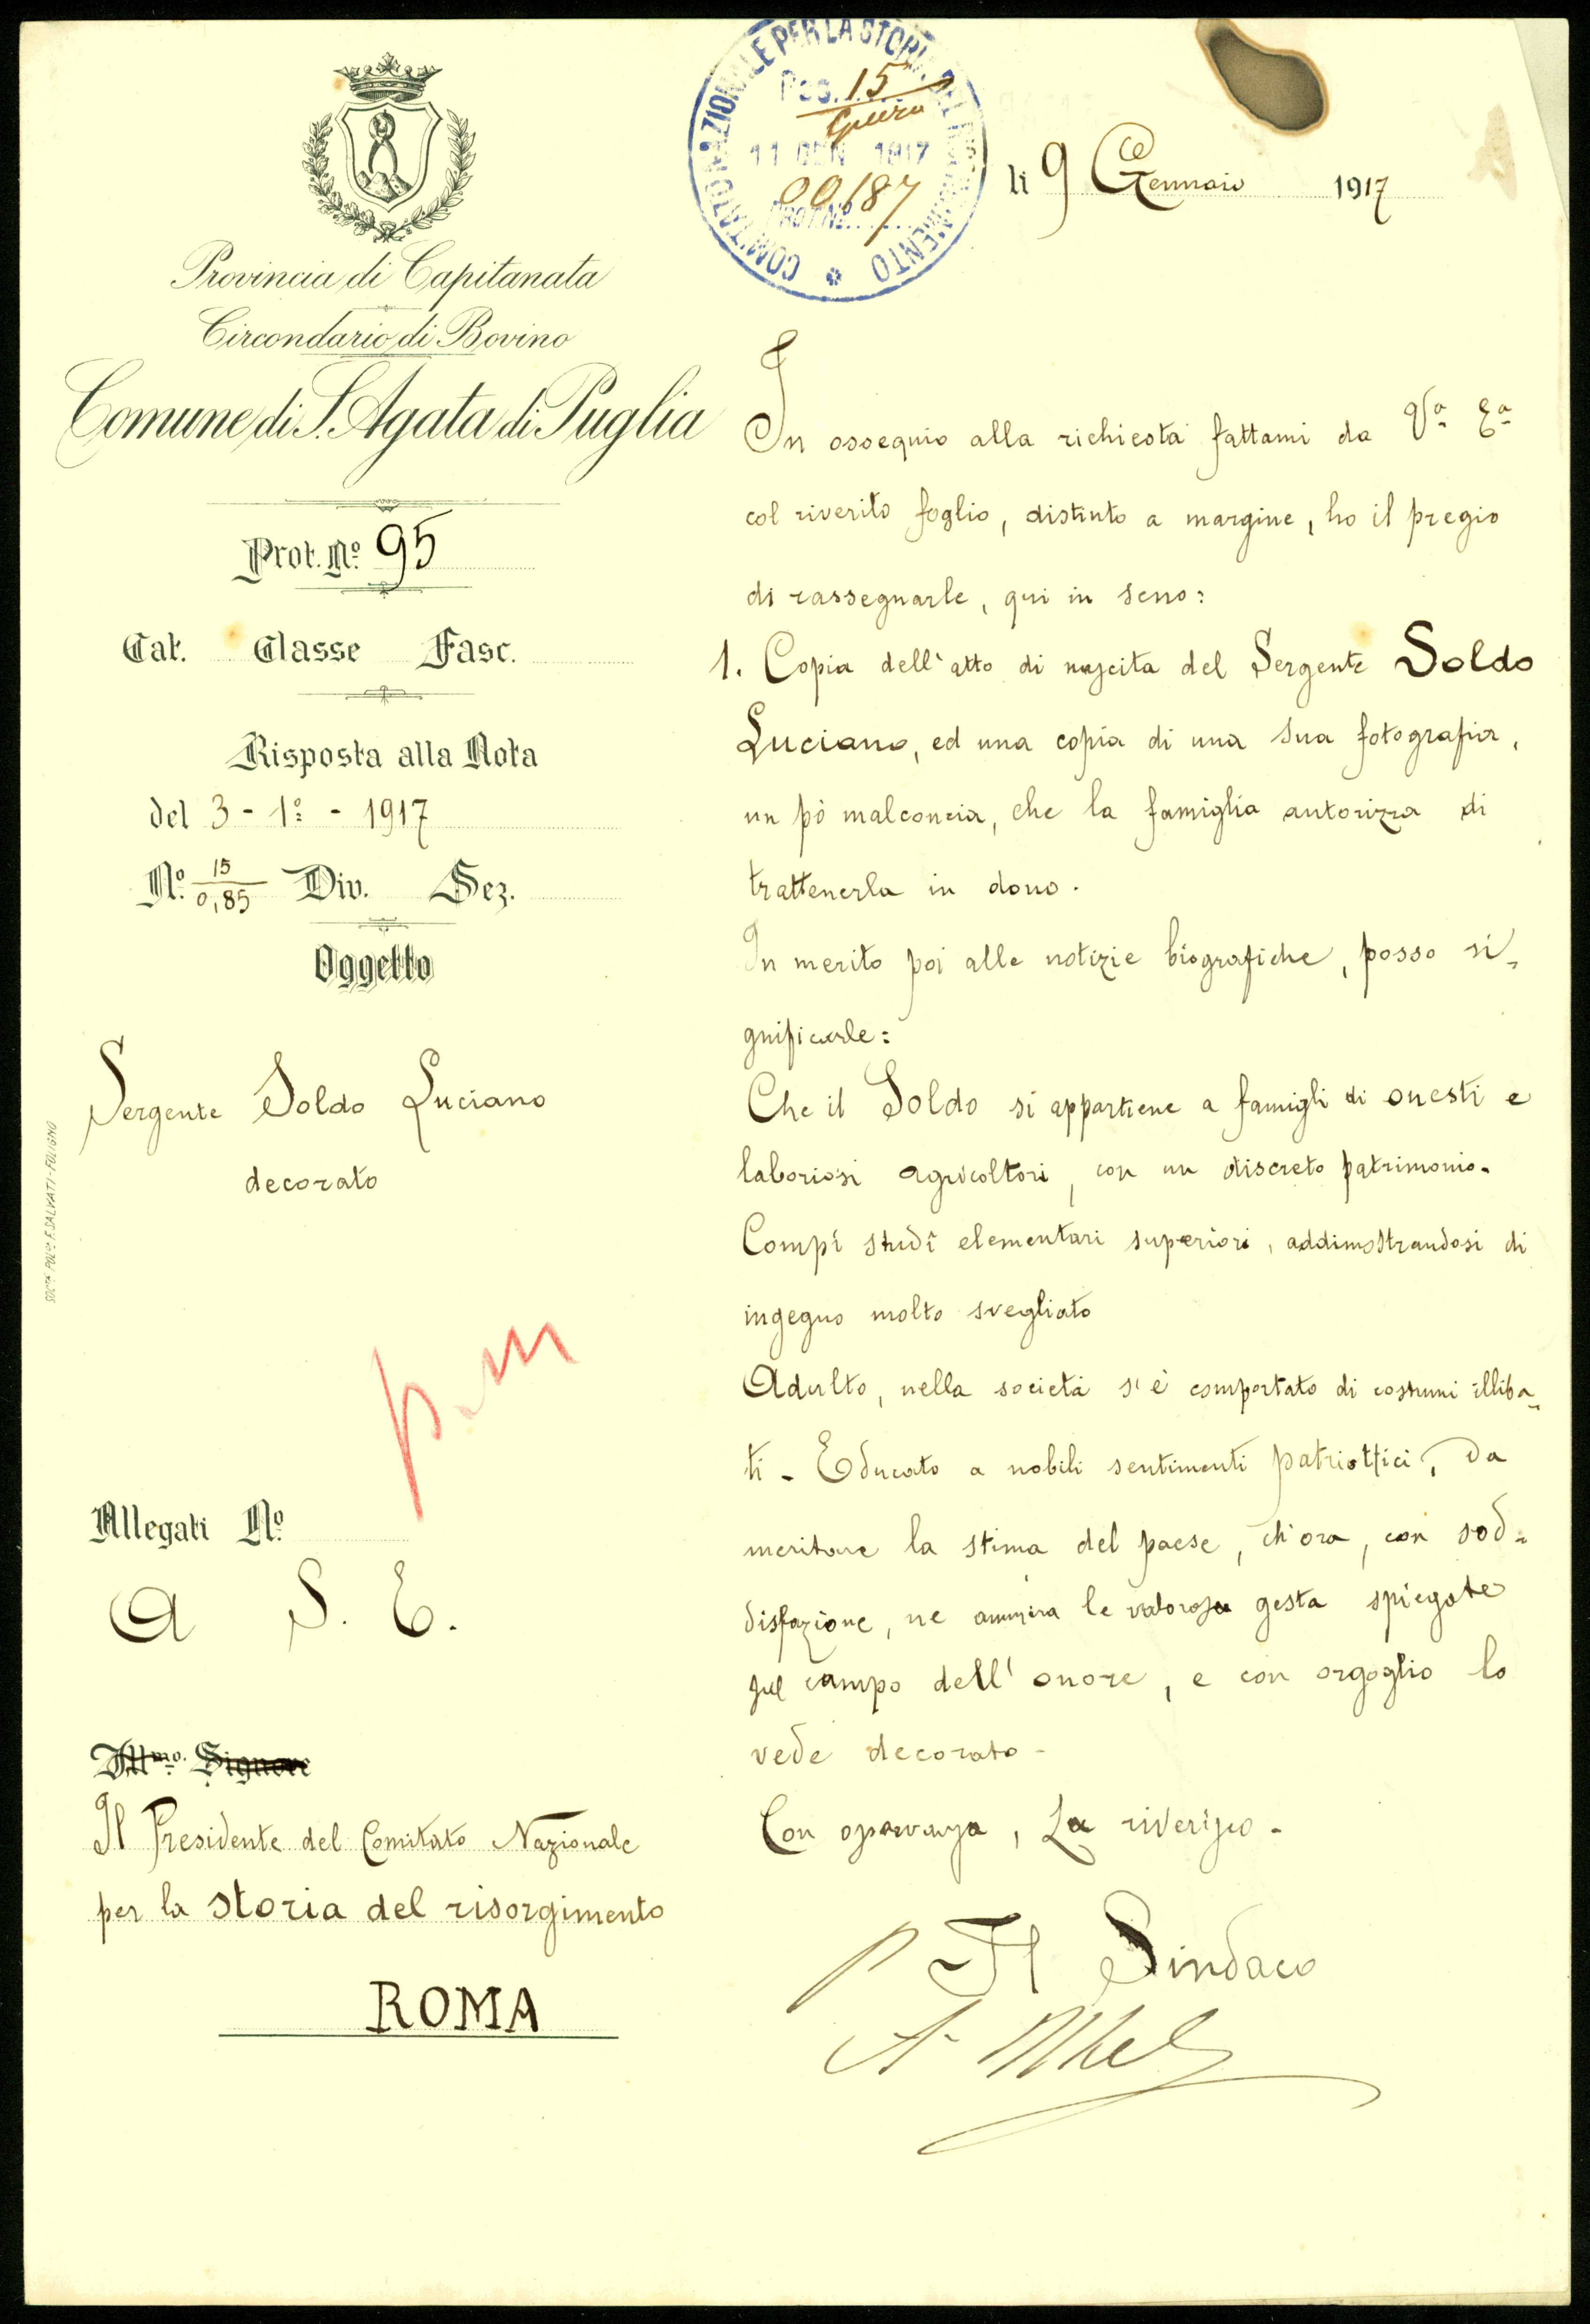 COMITATO NAZIONALE PER LA STORIA DEL RISORGIMENTO
Pos. 15
Guerra
11 GEN 1917
00187
PROT. N.º
li 9 Gennaio 1917
Provincia di Capitanata
Circondario di Bovino
Comune di S. Agata di Puglia
Prot. N.º 95
Cat. Classe Fasc.
Risposta alla Nota
del 3 - 1º - 1917
N.º 15/0,85 Div. Sez.
Oggetto
Sergente Soldo Luciano
decorato
p. m
Allegati N.º
A S. E.
Ill.mo Signore
Il Presidente del Comitato Nazionale
per la storia del risorgimento
ROMA
SOC.TÀ POL.CA F. SALVATI - FOLIGNO
In ossequio alla richiesta fattami da V.a E.a
col riverito foglio, distinto a margine, ho il pregio
di rassegnarle, qui in seno:
1. Copia dell'atto di nascita del Sergente Soldo
Luciano, ed una copia di una sua fotografia,
un pò malconcia, che la famiglia autorizza di
trattenerla in dono.
In merito poi alle notizie biografiche, posso si=
gnificarle:
Che il Soldo si appartiene a famigli di onesti e
laboriosi agricoltori, con un discreto patrimonio.
Compì studî elementari superiori, addimostrandosi di
ingegno molto svegliato
Adulto, nella società s'è comportato di costumi illiba=
ti - Educato a nobili sentimenti patriottici, da
meritare la stima del paese, ch'ora, con sod=
disfazione, ne ammira le valorose gesta spiegate
sul campo dell'onore, e con orgoglio lo
vede decorato -
Con osservanza, La riverisco -
p Il Sindaco